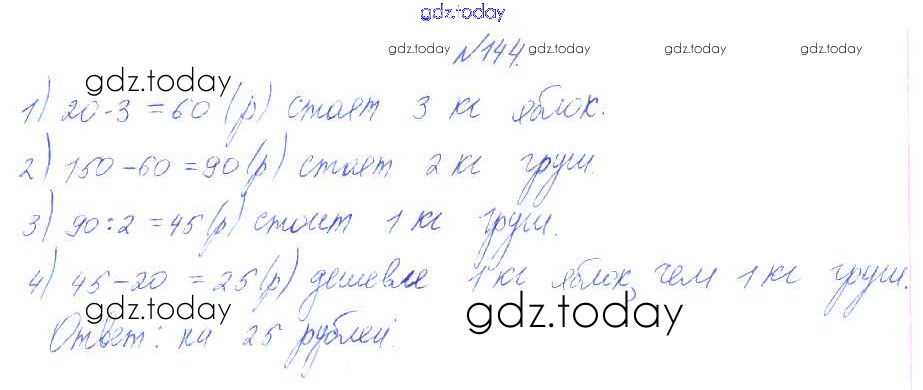 gdz.today
№144.
gdz.today gdz.today gdz.today gdz.today
gdz.today
1) 20·3=60 (р) стоят 3 кг яблок.
2) 150-60=90 (р) стоят 2 кг груш.
3) 90:2=45 (р) стоит 1 кг груш.
4) 45-20=25 (р) дешевле 1 кг яблок, чем 1 кг груш.
gdz.today gdz.today
Ответ: на 25 рублей.